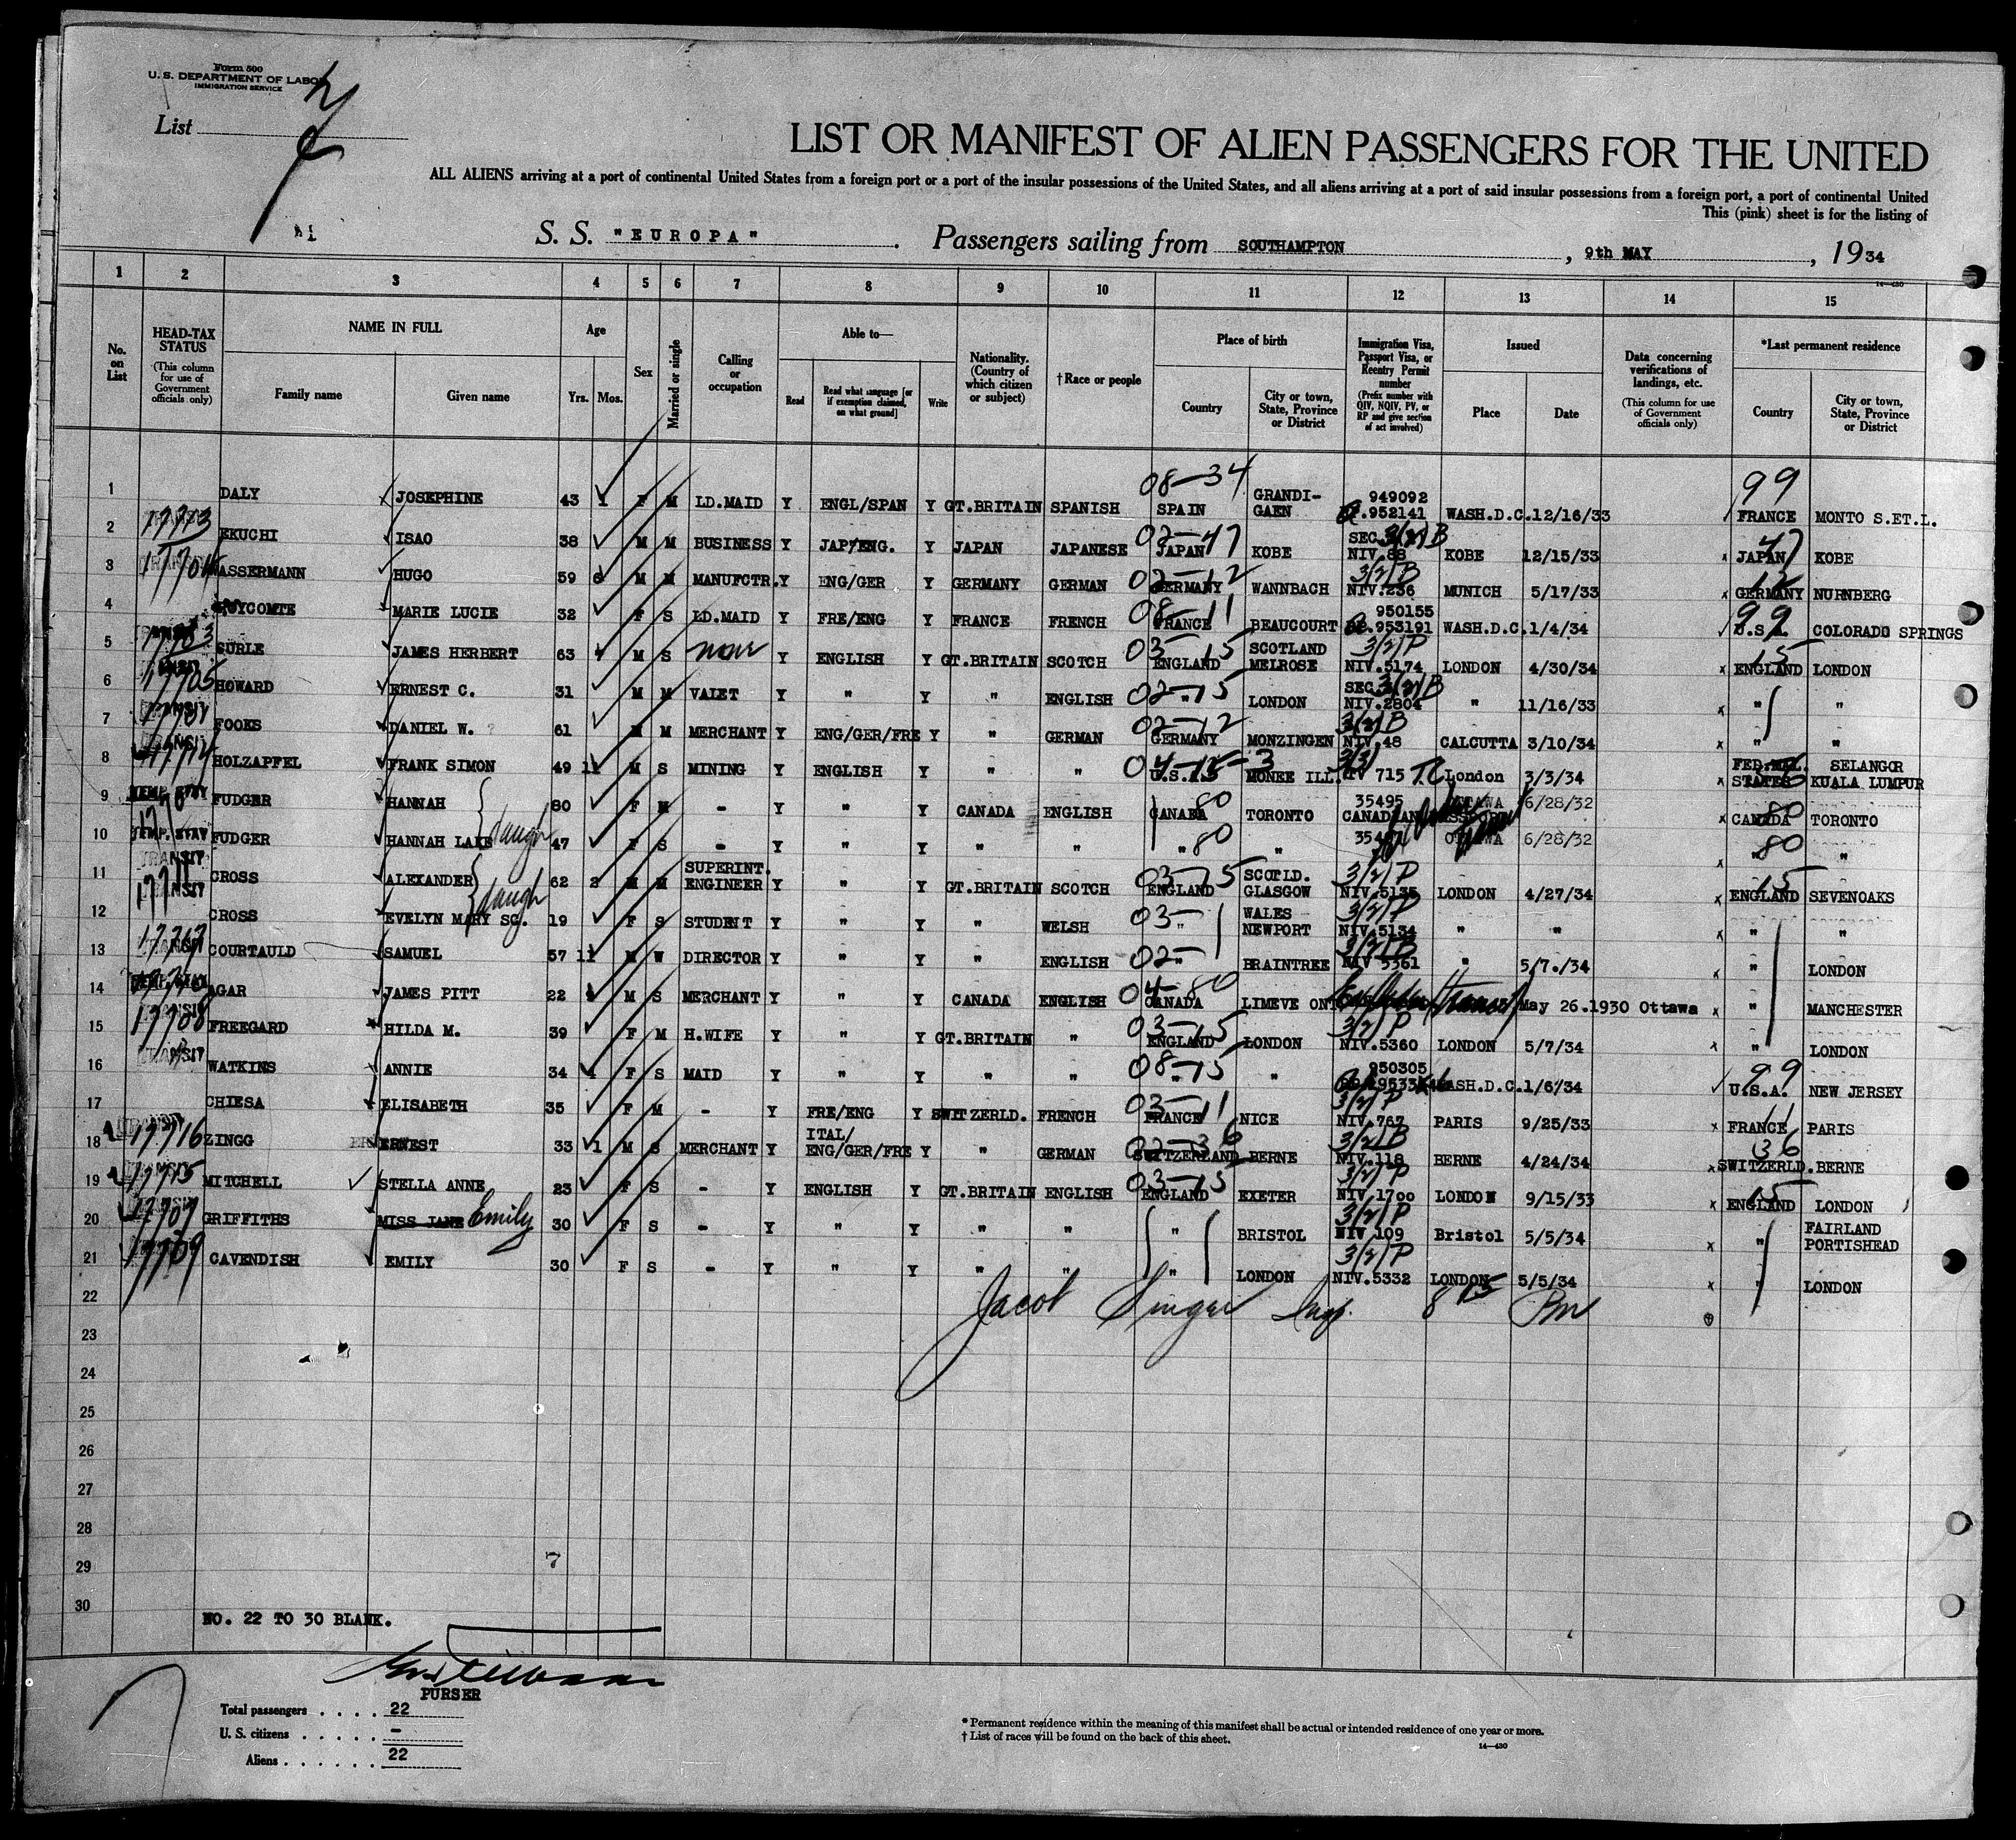 Form 500
U. S. DEPARTMENT OF LABOR
IMMIGRATION SERVICE
List
LIST OR MANIFEST OF ALIEN PASSENGERS FOR THE UNITED
ALL ALIENS arriving at a port of continental United States from a foreign port or a port of the insular possessions of the United States, and all aliens arriving at a port of said insular possessions from a foreign port, a port of continental United
This (pink) sheet is for the listing of
S. S. "EUROPA" Passengers sailing from SOUTHAMPTON, 9th MAY, 1934
14—430
1 2 3 4 5 6 7 8 9 10 11 12 13 14 15
No. on List
HEAD-TAX STATUS (This column for use of Government officials only)
NAME IN FULL
Family name Given name
Age
Yrs. Mos.
Sex
Married or single
Calling or occupation
Able to—
Read Read what language [or if exemption claimed, on what ground] Write
Nationality. (Country of which citizen or subject)
†Race or people
Place of birth
Country City or town, State, Province or District
Immigration Visa, Passport Visa, or Reentry Permit number (Prefix number with QIV, NQIV, PV, or RP and give section of act involved)
Issued
Place Date
Data concerning verifications of landings, etc. (This column for use of Government officials only)
*Last permanent residence
Country City or town, State, Province or District
1 DALY JOSEPHINE 43 1 F M LD.MAID Y ENGL/SPAN Y GT.BRITAIN SPANISH 08-34 SPAIN GRANDI-GAEN 949092 .952141 WASH.D.C. 12/16/33 99 FRANCE MONTO S.ET.L.
2 EKUCHI ISAO 38 M M BUSINESS Y JAP/ENG. Y JAPAN JAPANESE 02-47 JAPAN KOBE SEC 3(2)B NIV.88 KOBE 12/15/33 JAPAN 47 KOBE
3 ASSERMANN HUGO 59 6 M M MANUFCTR. Y ENG/GER Y GERMANY GERMAN 02-12 GERMANY WANNBACH 3(2)B NIV.236 MUNICH 5/17/33 12 GERMANY NURNBERG
4 UYCOMTE MARIE LUCIE 32 F S LD.MAID Y FRE/ENG Y FRANCE FRENCH 08-11 FRANCE BEAUCOURT 950155 .953191 WASH.D.C. 1/4/34 99 U.S.A. COLORADO SPRINGS
5 CURLE JAMES HERBERT 63 M S none Y ENGLISH Y GT.BRITAIN SCOTCH 03-15 ENGLAND SCOTLAND MELROSE 3(2)P NIV.5174 LONDON 4/30/34 15 ENGLAND LONDON
6 HOWARD ERNEST C. 31 M M VALET Y " Y " ENGLISH 02-15 " LONDON SEC 3(2)B NIV.2804 " 11/16/33 " "
7 FOOKS DANIEL W. 61 M M MERCHANT Y ENG/GER/FRE Y " GERMAN 02-12 GERMANY MONZINGEN 3(2)B NIV.48 CALCUTTA 3/10/34 " "
8 HOLZAPFEL FRANK SIMON 49 11 M S MINING Y ENGLISH Y " " U.S.A. MONEE ILL. 715 T.C London 3/3/34 FED.MAL. STATES SELANGOR KUALA LUMPUR
9 FUDGER HANNAH 80 F M - Y " Y CANADA ENGLISH 80 CANADA TORONTO 35495 CANADIAN OTTAWA 6/28/32 80 CANADA TORONTO
10 FUDGER HANNAH LAKE daugh 47 F S - Y " Y " " 80 " " OTTAWA 6/28/32 80 " "
11 CROSS ALEXANDER 62 2 M M SUPERINT. ENGINEER Y " Y GT.BRITAIN SCOTCH 03-15 ENGLAND SCOTLD. GLASGOW 3(2)P NIV.5135 LONDON 4/27/34 15 ENGLAND SEVENOAKS
12 CROSS EVELYN MARY SC. daugh 19 F S STUDENT Y " Y " WELSH 03- " WALES NEWPORT 3(2)P NIV.5134 " " " "
13 COURTAULD SAMUEL 57 11 M W DIRECTOR Y " Y " ENGLISH 02- " BRAINTREE 3(2)B NIV 5361 " 5/7./34 " LONDON
14 AGAR JAMES PITT 22 M S MERCHANT Y " Y CANADA ENGLISH 04-80 CANADA LIMEVE ONT May 26.1930 Ottawa " MANCHESTER
15 FREEGARD HILDA M. 39 F M H.WIFE Y " Y GT.BRITAIN " 03-15 ENGLAND LONDON 3(2)P NIV.5360 LONDON 5/7/34 " LONDON
16 WATKINS ANNIE 34 F S MAID Y " Y " " 08-15 " " 950305 WASH.D.C. 1/6/34 99 U.S.A. NEW JERSEY
17 CHIESA ELISABETH 35 F M - Y FRE/ENG Y SWITZERLD. FRENCH 03-11 FRANCE NICE 3(2)P NIV.767 PARIS 9/25/33 11 FRANCE PARIS
18 17716 ZINGG ERNEST 33 1 M S MERCHANT Y ITAL/ENG/GER/FRE Y " GERMAN 02-36 SWITZERLAND BERNE 3(2)B NIV.118 BERNE 4/24/34 36 SWITZERLD. BERNE
19 17715 MITCHELL STELLA ANNE 23 F S - Y ENGLISH Y GT.BRITAIN ENGLISH 03-15 ENGLAND EXETER 3(2)P NIV.1700 LONDON 9/15/33 15 ENGLAND LONDON
20 17707 GRIFFITHS MISS JANE Emily 30 F S - Y " Y " " " BRISTOL 3(2)P NIV 109 Bristol 5/5/34 " FAIRLAND PORTISHEAD
21 17709 CAVENDISH EMILY 30 F S - Y " Y " " " LONDON 3(2)P NIV.5332 LONDON 5/5/34 " LONDON
22 Jacob Singer Insp. 8 15 PM
23
24
25
26
27
28
29 7
30
NO. 22 TO 30 BLANK.
PURSER
Total passengers . . . . 22
U. S. citizens . . . . . -
Aliens . . . . . . 22
* Permanent residence within the meaning of this manifest shall be actual or intended residence of one year or more.
† List of races will be found on the back of this sheet.
14—430